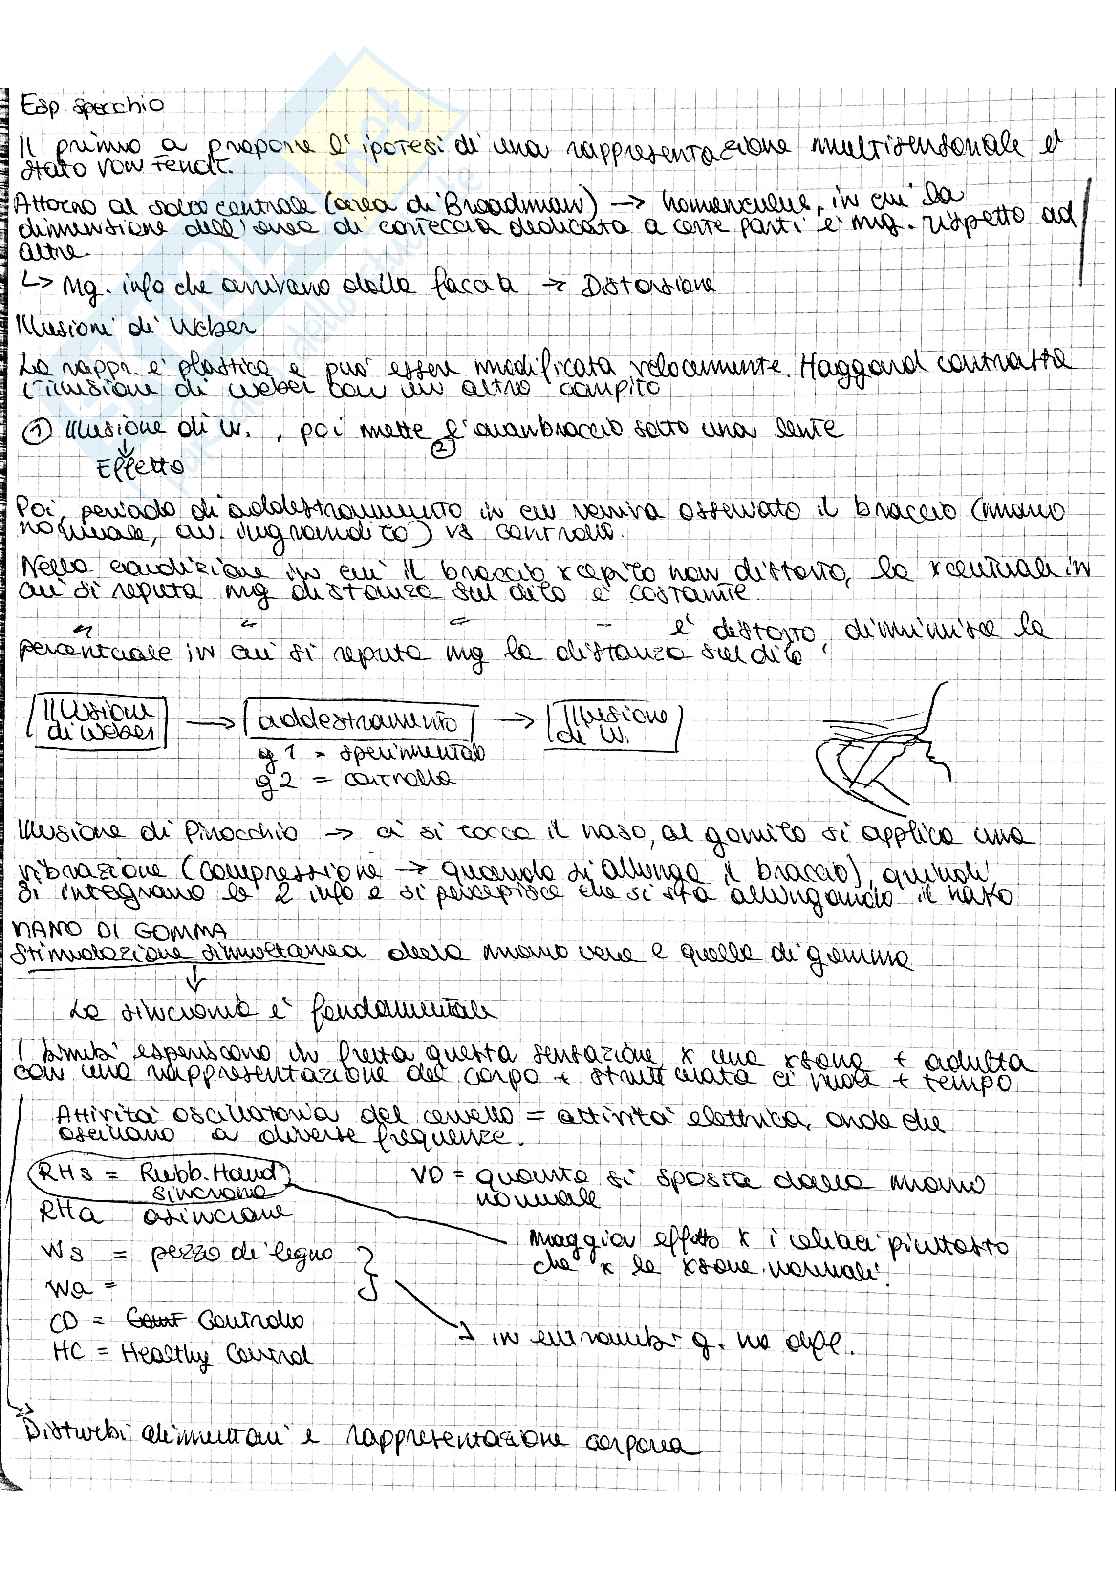 Esp. specchio
Il primo a proporre l'ipotesi di una rappresentazione multisensoriale è
stato von
Attorno al solco centrale (area di Broadman) → homunculus, in cui la
dimensione dell'area di corteccia dedicata a certe parti è mg. rispetto ad
altre.
↳ Mg. info che arrivano dalla faccia → Distorsione
Illusioni di Weber
La rappr. è plastica e può essere modificata velocemente. Haggard contrasta
l'illusione di Weber con un altro compito
① Illusione di W., poi mette l'avambraccio sotto una lente
②
↓
Effetto
Poi, periodo di addestramento in cui veniva osservato il braccio (mano
normale, av. ingrandito) vs controllo.
Nella condizione in cui il braccio xcepito non distorto, la xcentuale in
cui si reputa mg distanza sul dito è costante.
" " " – è distorto, diminuisce la
percentuale in cui si reputa mg la distanza sul dito
Illusione di Weber → addestramento → Illusione di W.
g 1 = sperimentale
g 2 = controllo
Illusione di Pinocchio → ci si tocca il naso, al gomito si applica una
vibrazione (compressione → quando si allunga il braccio), quindi
si integrano le 2 info e si percepisce che si sta allungando il naso
MANO DI GOMMA
Stimolazione simultanea della mano vera e quella di gomma
↓
La sincronia è fondamentale
I bimbi esperiscono in fretta questa sensazione x una xsona + adulta
con una rappresentazione del corpo + strutturata ci vuole + tempo
Attività oscillatoria del cervello = attività elettrica, onde che
oscillano a diverse frequenze.
RHs = Rubb. Hand sincrona
VD = quanto si sposta dalla mano
normale
RHa asincrone
maggior effetto x i piuttosto
che x le xsone normali.
Ws = pezzo di legno
Wa =
CD = Controllo
HC = Healthy Control
→ in entrambi g. no diff.
Disturbi alimentari e rappresentazione corporea